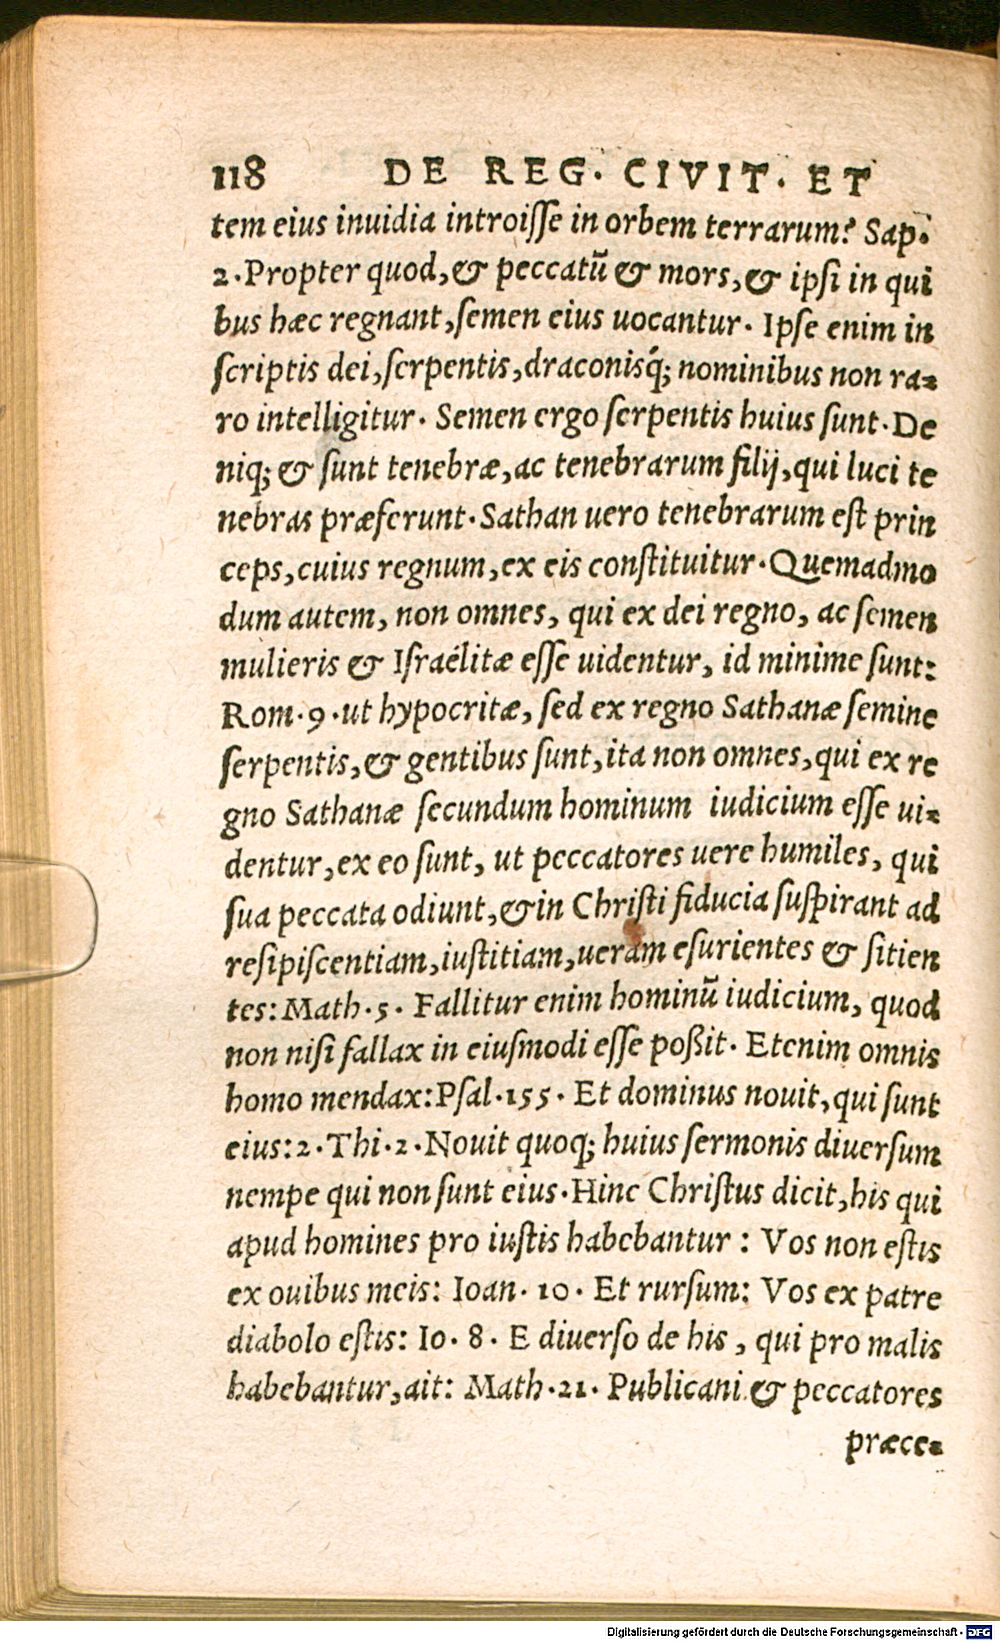 118 DE REG. CIVIT. ET
tem eius inuidia introiſſe in orbem terrarum? Sap.
2. Propter quod, & peccatū & mors, & ipſi in qui
bus hæc regnant, ſemen eius uocantur. Ipſe enim in
ſcriptis dei, ſerpentis, draconisq́; nominibus non ra⸗
ro intelligitur. Semen ergo ſerpentis huius ſunt. De
niq; & ſunt tenebræ, ac tenebrarum filij, qui luci te
nebras præferunt. Sathan uero tenebrarum eſt prin
ceps, cuius regnum, ex eis conſtituitur. Quemadmo
dum autem, non omnes, qui ex dei regno, ac ſemen
mulieris & Iſraélitæ eſſe uidentur, id minime ſunt:
Rom. 9. ut hypocritæ, ſed ex regno Sathanæ ſemine
ſerpentis, & gentibus ſunt, ita non omnes, qui ex re
gno Sathanæ ſecundum hominum iudicium eſſe ui⸗
dentur, ex eo ſunt, ut peccatores uere humiles, qui
ſua peccata odiunt, & in Chriſti fiducia ſuſpirant ad
reſipiſcentiam, iuſtitiam, ueram eſurientes & ſitien
tes: Math. 5. Fallitur enim hominū iudicium, quod
non niſi fallax in eiuſmodi eſſe poßit. Etenim omnis
homo mendax: Pſal. 155. Et dominus nouit, qui ſunt
eius: 2. Thi. 2. Nouit quoq; huius ſermonis diuerſum
nempe qui non ſunt eius. Hinc Chriſtus dicit, his qui
apud homines pro iuſtis habebantur : Vos non eſtis
ex ouibus meis: Ioan. 10. Et rurſum: Vos ex patre
diabolo eſtis: Io. 8. E diuerſo de his, qui pro malis
habebantur, ait: Math. 21. Publicani & peccatores
præce⸗
Digitalisierung gefördert durch die Deutsche Forschungsgemeinschaft - DFG